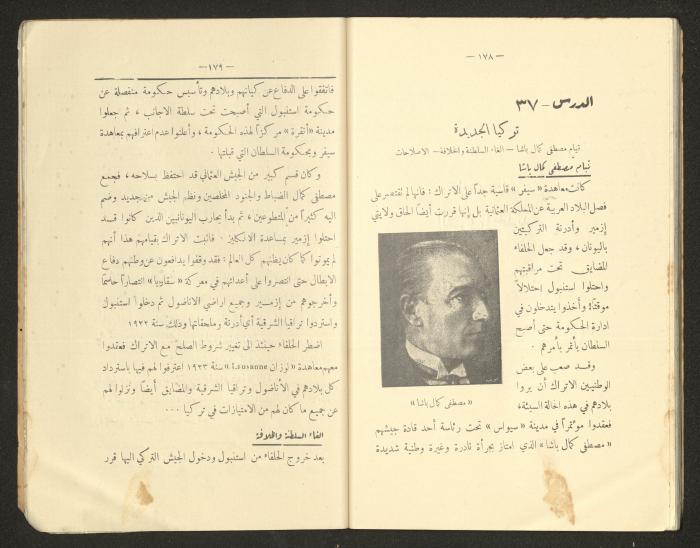 — ١٧٨ —
الدرس - ٣٧
تركيا الجديدة
قيام مصطفى كمال باشا - الغاء السلطنة والخلافة - الاصلاحات
قيام مصطفى كمال باشا
كانت معاهدة «سيفر» قاسية جداً على الاتراك : فانها لم تقتصر على
فصل البلاد العربية عن المملكة العثمانية بل إنها قررت أيضاً الحاق ولايتي
إزمير وأدرنة التركيتين
باليونان ، وقد جعل الحلفاء
المضايق تحت مراقبتهم
واحتلوا استنبول إحتلالاً
موقتاً؛ وأخذوا يتدخلون في
ادارة الحكومة حتى أصبح
السلطان يأتمر بأمرهم .
وقد صعب على بعض
الوطنيين الاتراك أن يروا
بلادهم في هذه الحالة السيئة،
«مصطفى كمال باشا»
فعقدوا مؤتمراً في مدينة «سيواس» تحت رئاسة أحد قادة جيشهم
«مصطفى كمال باشا» الذي امتاز بجرأة نادرة وغيرة وطنية شديدة
— ١٧٩ —
فاتفقوا على الدفاع عن كيانهم وبلادهم وتأسيس حكومة منفصلة عن
حكومة استنبول التي أصبحت تحت سلطة الاجانب ، ثم جعلوا
مدينة «أنقرة» مركزاً لهذه الحكومة ، وأعلنوا عدم اعترافهم بمعاهدة
سيفر وبحكومة السلطان التي قبلتها .
وكان قسم كبير من الجيش العثماني قد احتفظ بسلاحه ، فجمع
مصطفى كمال الضباط والجنود المخلصين ونظم الجيش من جديد وضم
اليه كثيراً من المتطوعين ، ثم بدأ يحارب اليونانيين الذين كانوا قد
احتلوا إزمير بمساعدة الانكليز . فاثبت الاتراك بقيامهم هذا أنهم
لم يموتوا كما كان يظنهم كل العالم : فقد وقفوا يدافعون عن وطنهم دفاع
الابطال حتى انتصروا على أعدائهم في معركة «سقاريا» انتصاراً حاسماً
وأخرجوهم من إزمير وجميع اراضي الاناضول ثم دخلوا استنبول
واستردوا تراقيا الشرقية أي أدرنة وملحقاتها وذلك سنة ١٩٢٢
اضطر الحلفاء حينئذ الى تغيير شروط الصلح مع الاتراك فعقدوا
معهم معاهدة «لوزان Lausanne» سنة ١٩٢٣ اعترفوا لهم فيها باسترداد
كل بلادهم في الأناضول وتراقيا الشرقية والمضايق أيضاً ونزلوا لهم
عن جميع ما كان لهم من الامتيازات في تركيا ...
الغاء السلطنة والخلافة
بعد خروج الحلفاء من استنبول ودخول الجيش التركي اليها قرر